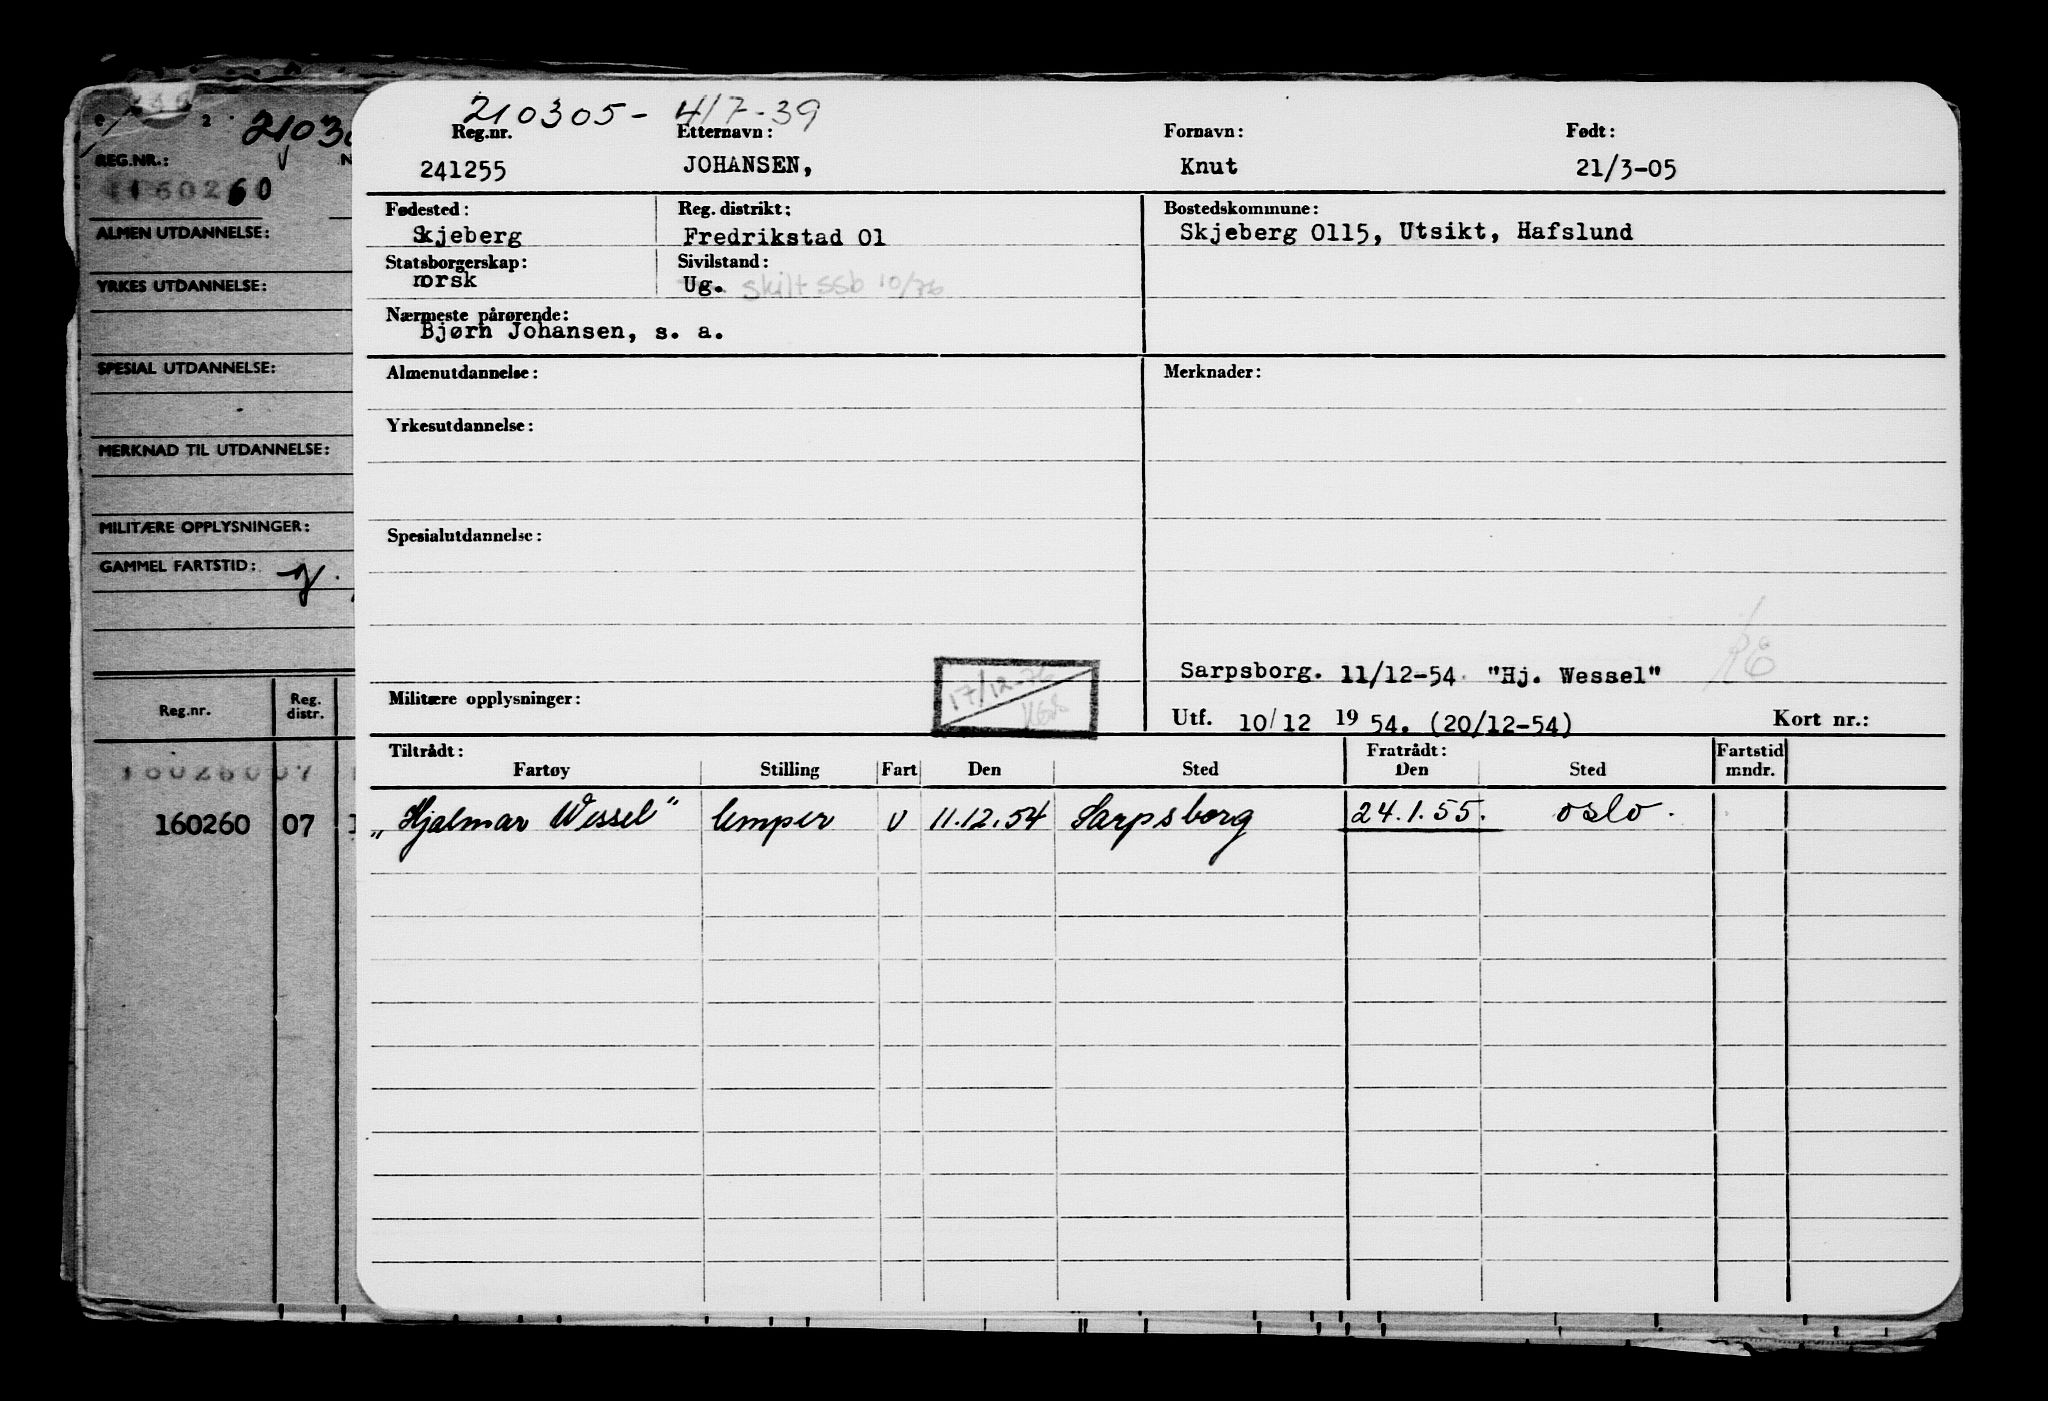 210305- 41739
Reg.nr. Etternavn: Fornavn: Født:
241255 JOHANSEN, Knut 21/3-05
Fødested: Reg. distrikt: Bostedskommune:
Skjeberg Fredrikstad 01 Skjeberg 0115, Utsikt, Hafslund
Statsborgerskap: Sivilstand:
norsk Ug. skilt ssb 10/76
Nærmeste pårørende:
Bjørn Johansen, s. a.
Almenutdannelse: Merknader:
Yrkesutdannelse:
Spesialutdannelse:
Sarpsborg. 11/12-54. "Hj. Wessel"
Militære opplysninger: 17/12-76
Utf. 10/12 1954. (20/12-54) Kort nr.:
Tiltrådt: Fratrådt: Fartstid
Fartøy Stilling Fart Den Sted Den Sted mndr.
„Hjalmar Wessel" lemper U 11.12.54 Sarpsborg 24.1.55. Oslo.
2 2103
REG.NR.:
160260
ALMEN UTDANNELSE:
YRKES UTDANNELSE:
SPESIAL UTDANNELSE:
MERKNAD TIL UTDANNELSE:
MILITÆRE OPPLYSNINGER:
GAMMEL FARTSTID:
Reg.nr. Reg. distr.
160260 07
160260 07